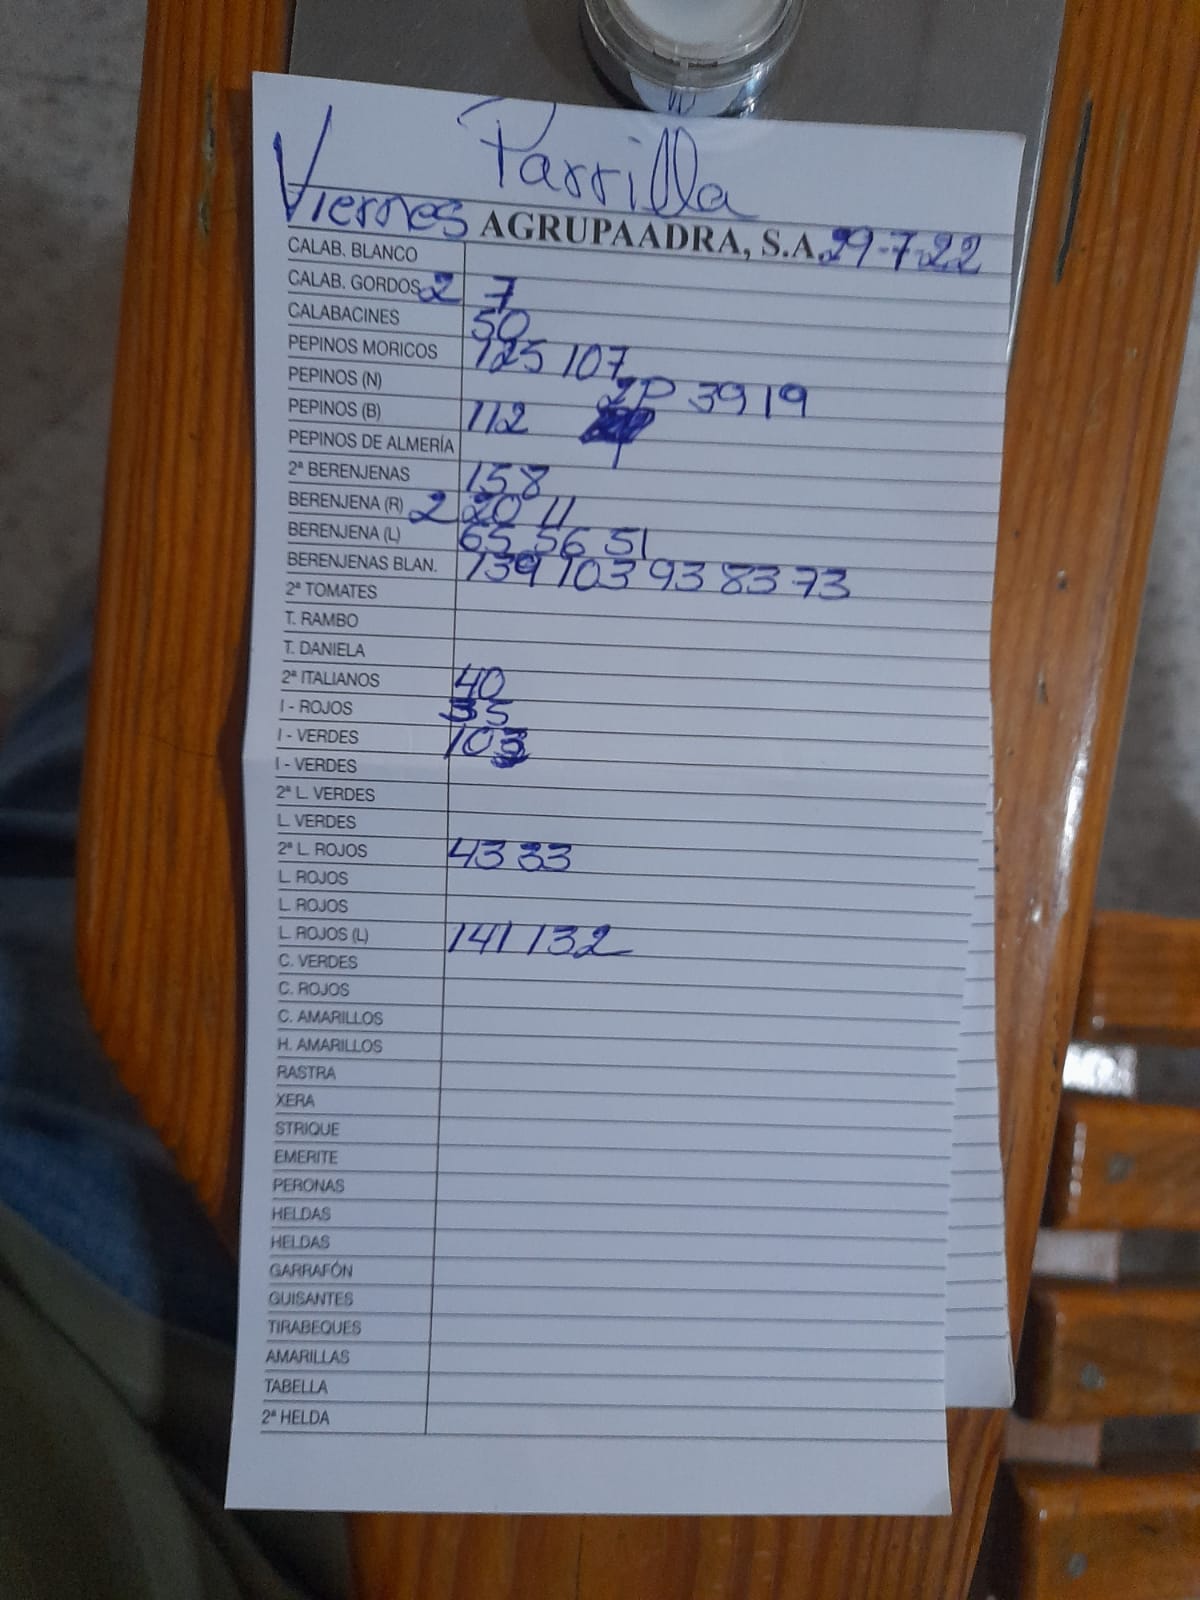 Parrilla
Viernes AGRUPAADRA, S.A. 29-7-22
CALAB. BLANCO
CALAB. GORDOS 2 7
CALABACINES 50
PEPINOS MORICOS 125 107
PEPINOS (N) 2P 39 19
PEPINOS (B) 112
PEPINOS DE ALMERÍA
2ª BERENJENAS 158
BERENJENA (R) 2 20 11
BERENJENA (L) 65 56 51
BERENJENAS BLAN. 139 103 93 83 73
2ª TOMATES
T. RAMBO
T. DANIELA
2ª ITALIANOS 40
I - ROJOS 35
I - VERDES 103
I - VERDES
2ª L. VERDES
L. VERDES
2ª L. ROJOS 43 33
L. ROJOS
L. ROJOS
L. ROJOS (L) 141 132
C. VERDES
C. ROJOS
C. AMARILLOS
H. AMARILLOS
RASTRA
XERA
STRIQUE
EMERITE
PERONAS
HELDAS
HELDAS
GARRAFÓN
GUISANTES
TIRABEQUES
AMARILLAS
TABELLA
2ª HELDA